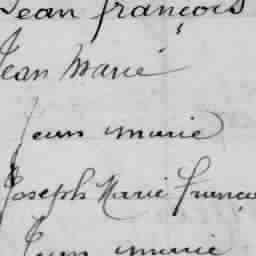 Jean françois
Jean Marie
Jean marie
Joseph Marie franço
Jean marie